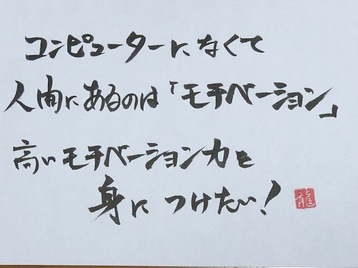 コンピューターになくて
人間にあるのは「モチベーション」
高いモチベーション力を
身につけたい!
龍